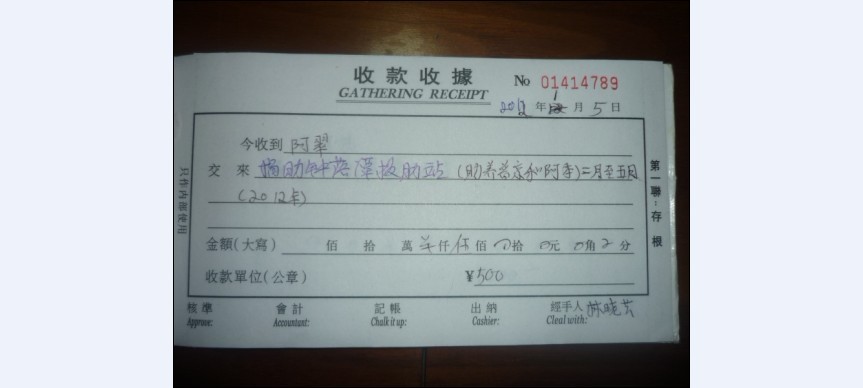 收款收據 No 01414789
GATHERING RECEIPT
2012 年 1 月 5 日
今收到 阿翠
交來 捐助钟落潭救助站 (助养 "阿李) 二月至五月
(2012年)
金額(大寫) 佰 拾 萬 仟 伍 佰 0 拾 0 元 0 角 分
收款單位(公章) ¥500
核準 會計 記帳 出納 經手人
Approve: Accountant: Chalk it up: Cashier: Cleal with:
只作內部使用
第一聯:存根